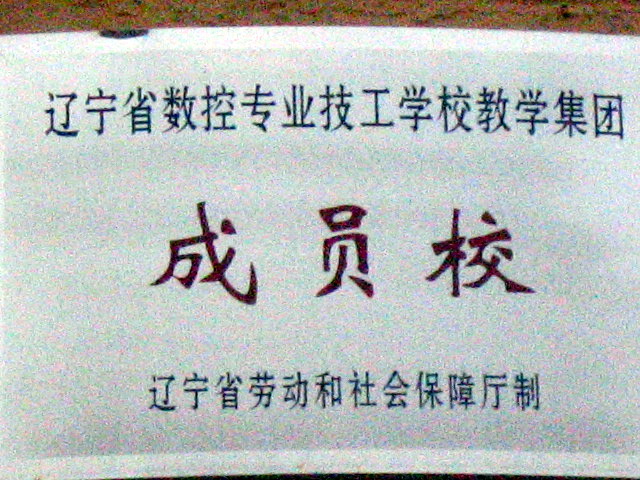 辽宁省数控专业技工学校教学集团
成员校
辽宁省劳动和社会保障厅制